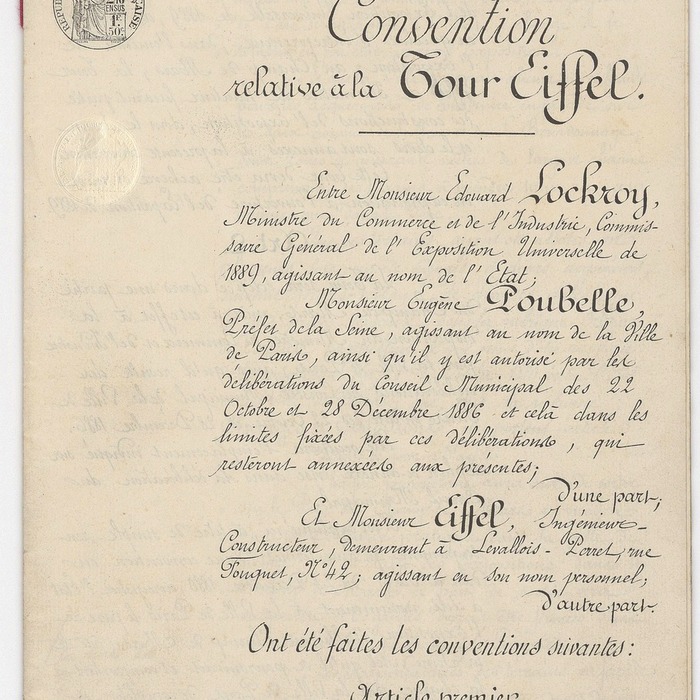 Convention
relative à la Tour Eiffel.
Entre Monsieur Edouard Lockroy,
Ministre du Commerce et de l'Industrie, Commis-
saire Général de l'Exposition Universelle de
1889, agissant au nom de l'Etat;
Monsieur Eugène Poubelle,
Préfet de la Seine, agissant au nom de la Ville
de Paris, ainsi qu'il y est autorisé par les
délibérations du Conseil Municipal des 22
Octobre et 28 Décembre 1886 et celà dans les
limites fixées par ces délibérations, qui
resteront annexées aux présentes;
d'une part;
Et Monsieur Eiffel, Ingénieur-
Constructeur, demeurant à Levallois-Perret, rue
Fouquet, N° 42; agissant en son nom personnel;
d'autre part.
Ont été faites les conventions suivantes:
Article premier